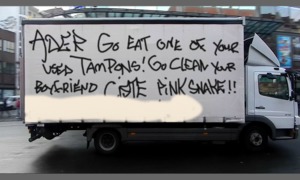 ADER GO EAT ONE OF YOUR
USED TAMPONS! GO CLEAN YOUR
BOYFRIEND PINK SNAKE!!